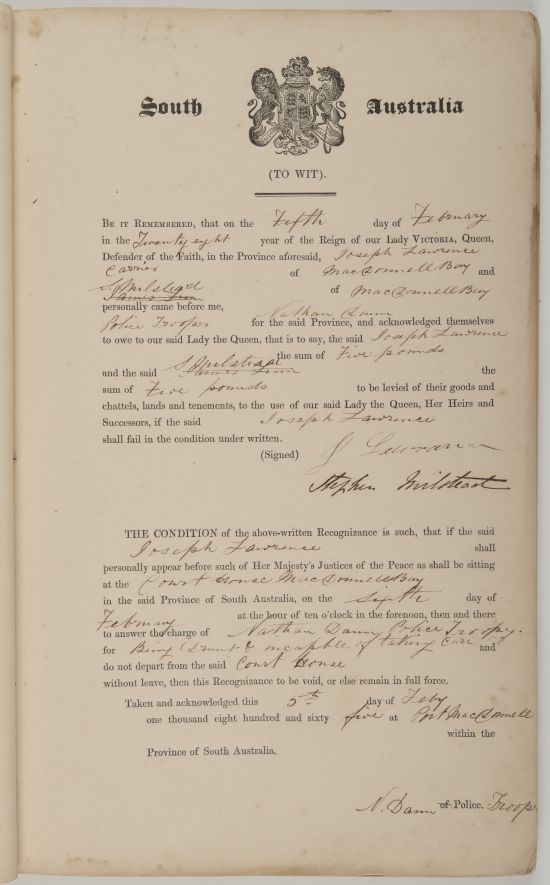 South Australia
(TO WIT).
BE IT REMEMBERED, that on the Fifth day of February
in the Twenty eight year of the Reign of our Lady VICTORIA, Queen,
Defender of the Faith, in the Province aforesaid, Joseph Lawrence
Carrier of MacDonnell Bay and
S Milstead
of MacDonnell Bay
personally came before me, Nathan Dann
Police Trooper for the said Province, and acknowledged themselves
to owe to our said Lady the Queen, that is to say, the said Joseph Lawrence
the sum of Five pounds
and the said S Milstead the
sum of Five pounds to be levied of their goods and
chattels, lands and tenements, to the use of our said Lady the Queen, Her Heirs and
Successors, if the said Joseph Lawrence
shall fail in the condition under written.
(Signed) J Lawrance
Stephen Milstead
THE CONDITION of the above-written Recognizance is such, that if the said
Joseph Lawrence shall
personally appear before such of Her Majesty's Justices of the Peace as shall be sitting
at the Court House MacDonnell Bay
in the said Province of South Australia, on the Sixth day of
February at the hour of ten o'clock in the forenoon, then and there
to answer the charge of Nathan Dann Police Trooper.
for Being Drunk & incapable of taking care and
do not depart from the said Court House
without leave, then this Recognizance to be void, or else remain in full force.
Taken and acknowledged this 5th day of Feby
one thousand eight hundred and sixty five at Port MacDonnell
within the
Province of South Australia.
N. Dann of Police. Trooper